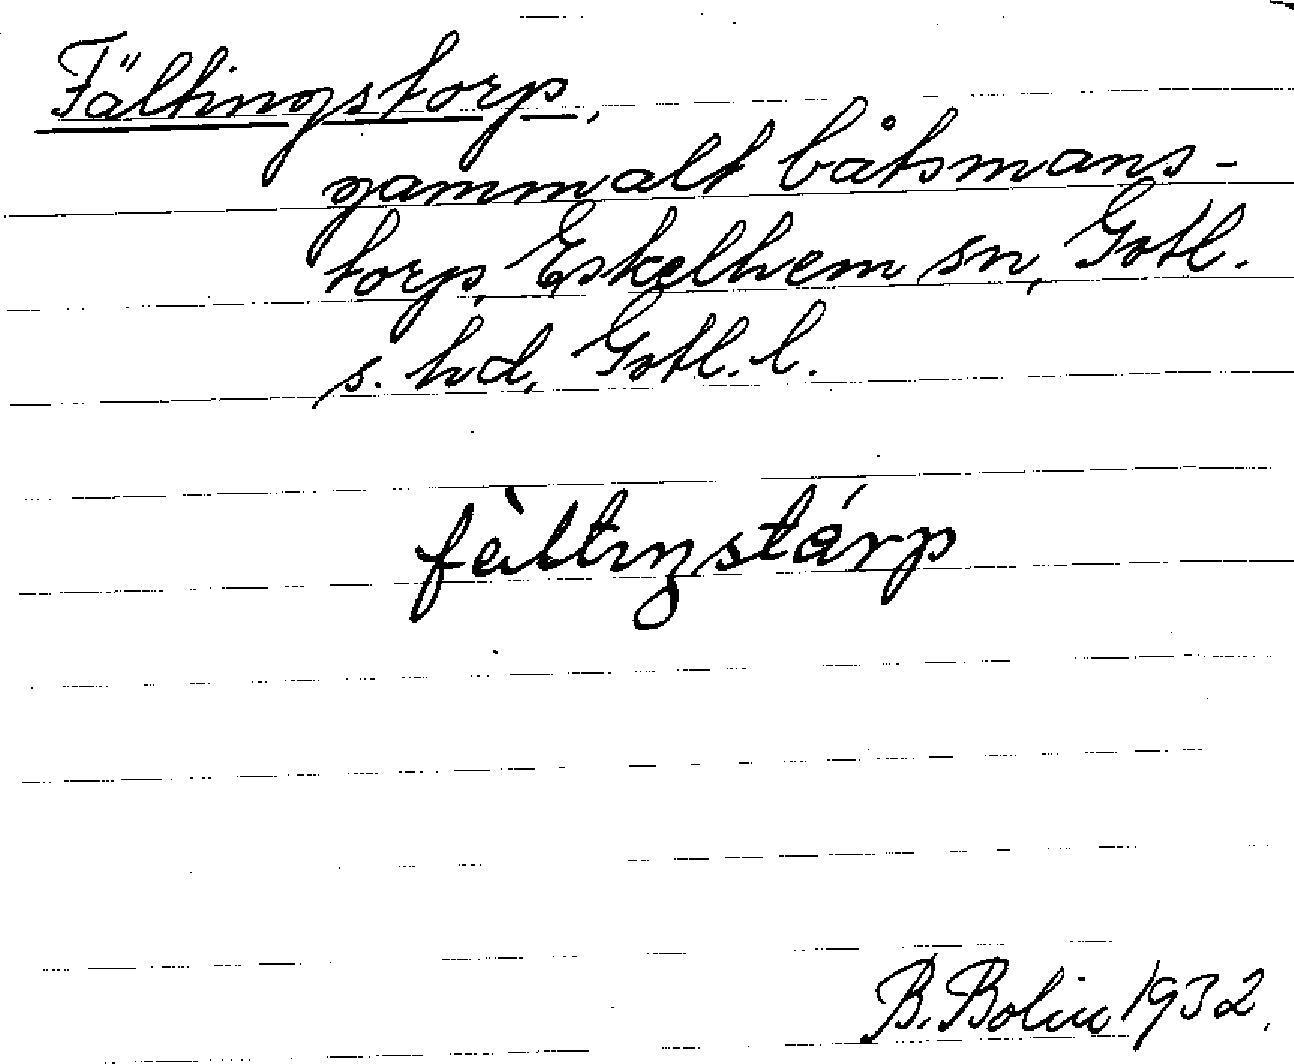 Fältingstorp,
gammalt båtsmans-
torp, Eskelhem sn, Gotl.
s. hd, Gotl. l.
fèltıŋstárp
B. Bolin 1932.